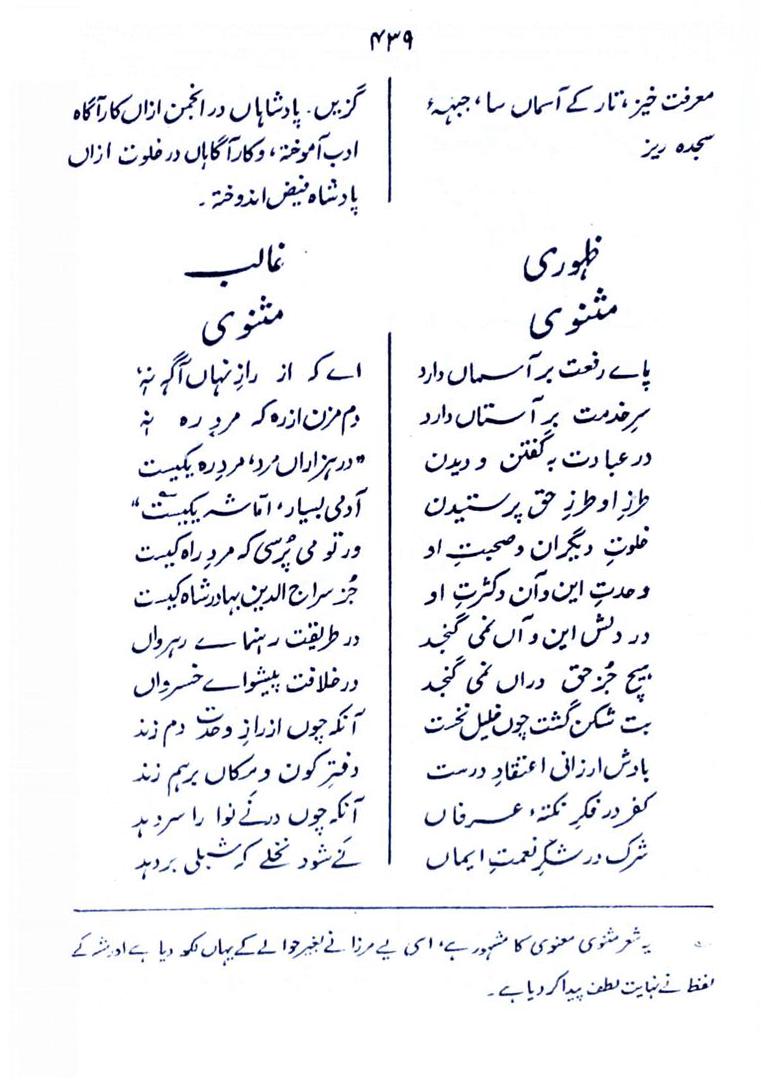 ۴۳۹
معرفت خیز، تار کے آسماں سا، جبہۂ
سجدہ ریز
گزیں۔ پادشاہاں در انجمن ازاں کار آگاہ
ادب آموختہ، و کار آگاہاں در خلوت ازاں
پادشاہ فیض اندوختہ۔
ظہوری
مثنوی
پاے رفعت بر آسماں دارد
سرِ خدمت بر آستاں دارد
در عبادت بہ گفتن و دیدن
طرزِ او طرزِ حق پرستیدن
خلوتِ دیگران و صحبتِ او
وحدتِ این و آن و کثرتِ او
در دلش این و آں نمی گنجد
ہیچ جُز حق دراں نمی گنجد
بت شکن گشت چوں خلیل نخست
بادش ارزانی اعتقادِ درست
کفر در فکرِ نکتۂ عرفاں
شرک در شکرِ نعمتِ ایماں
غالب
مثنوی
اے کہ از رازِ نہاں آگہ نۂ
دم مزن از رہ کہ مردِ رہ نۂ
"در ہزاراں مرد، مردِ رہ یکیست
آدمی بسیار، امّا شہ یکیست"
ور تو می پُرسی کہ مردِ راہ کیست
جُز سراج الدین بہادر شاہ کیست
در طریقت رہنماے رہرواں
در خلافت پیشواے خسرواں
آنکہ چوں از رازِ وحدت دم زند
دفترِ کون و مکاں برہم زند
آنکہ چوں در نے نوا را سر دہد
نَے شود نخلے کہ شبلی بر دہد
یہ شعر مثنوی معنوی کا مشہور ہے، اسی لیے مرزا نے بغیر حوالے کے یہاں لکھ دیا ہے اور شہ کے
لفظ نے نہایت لطف پیدا کر دیا ہے۔